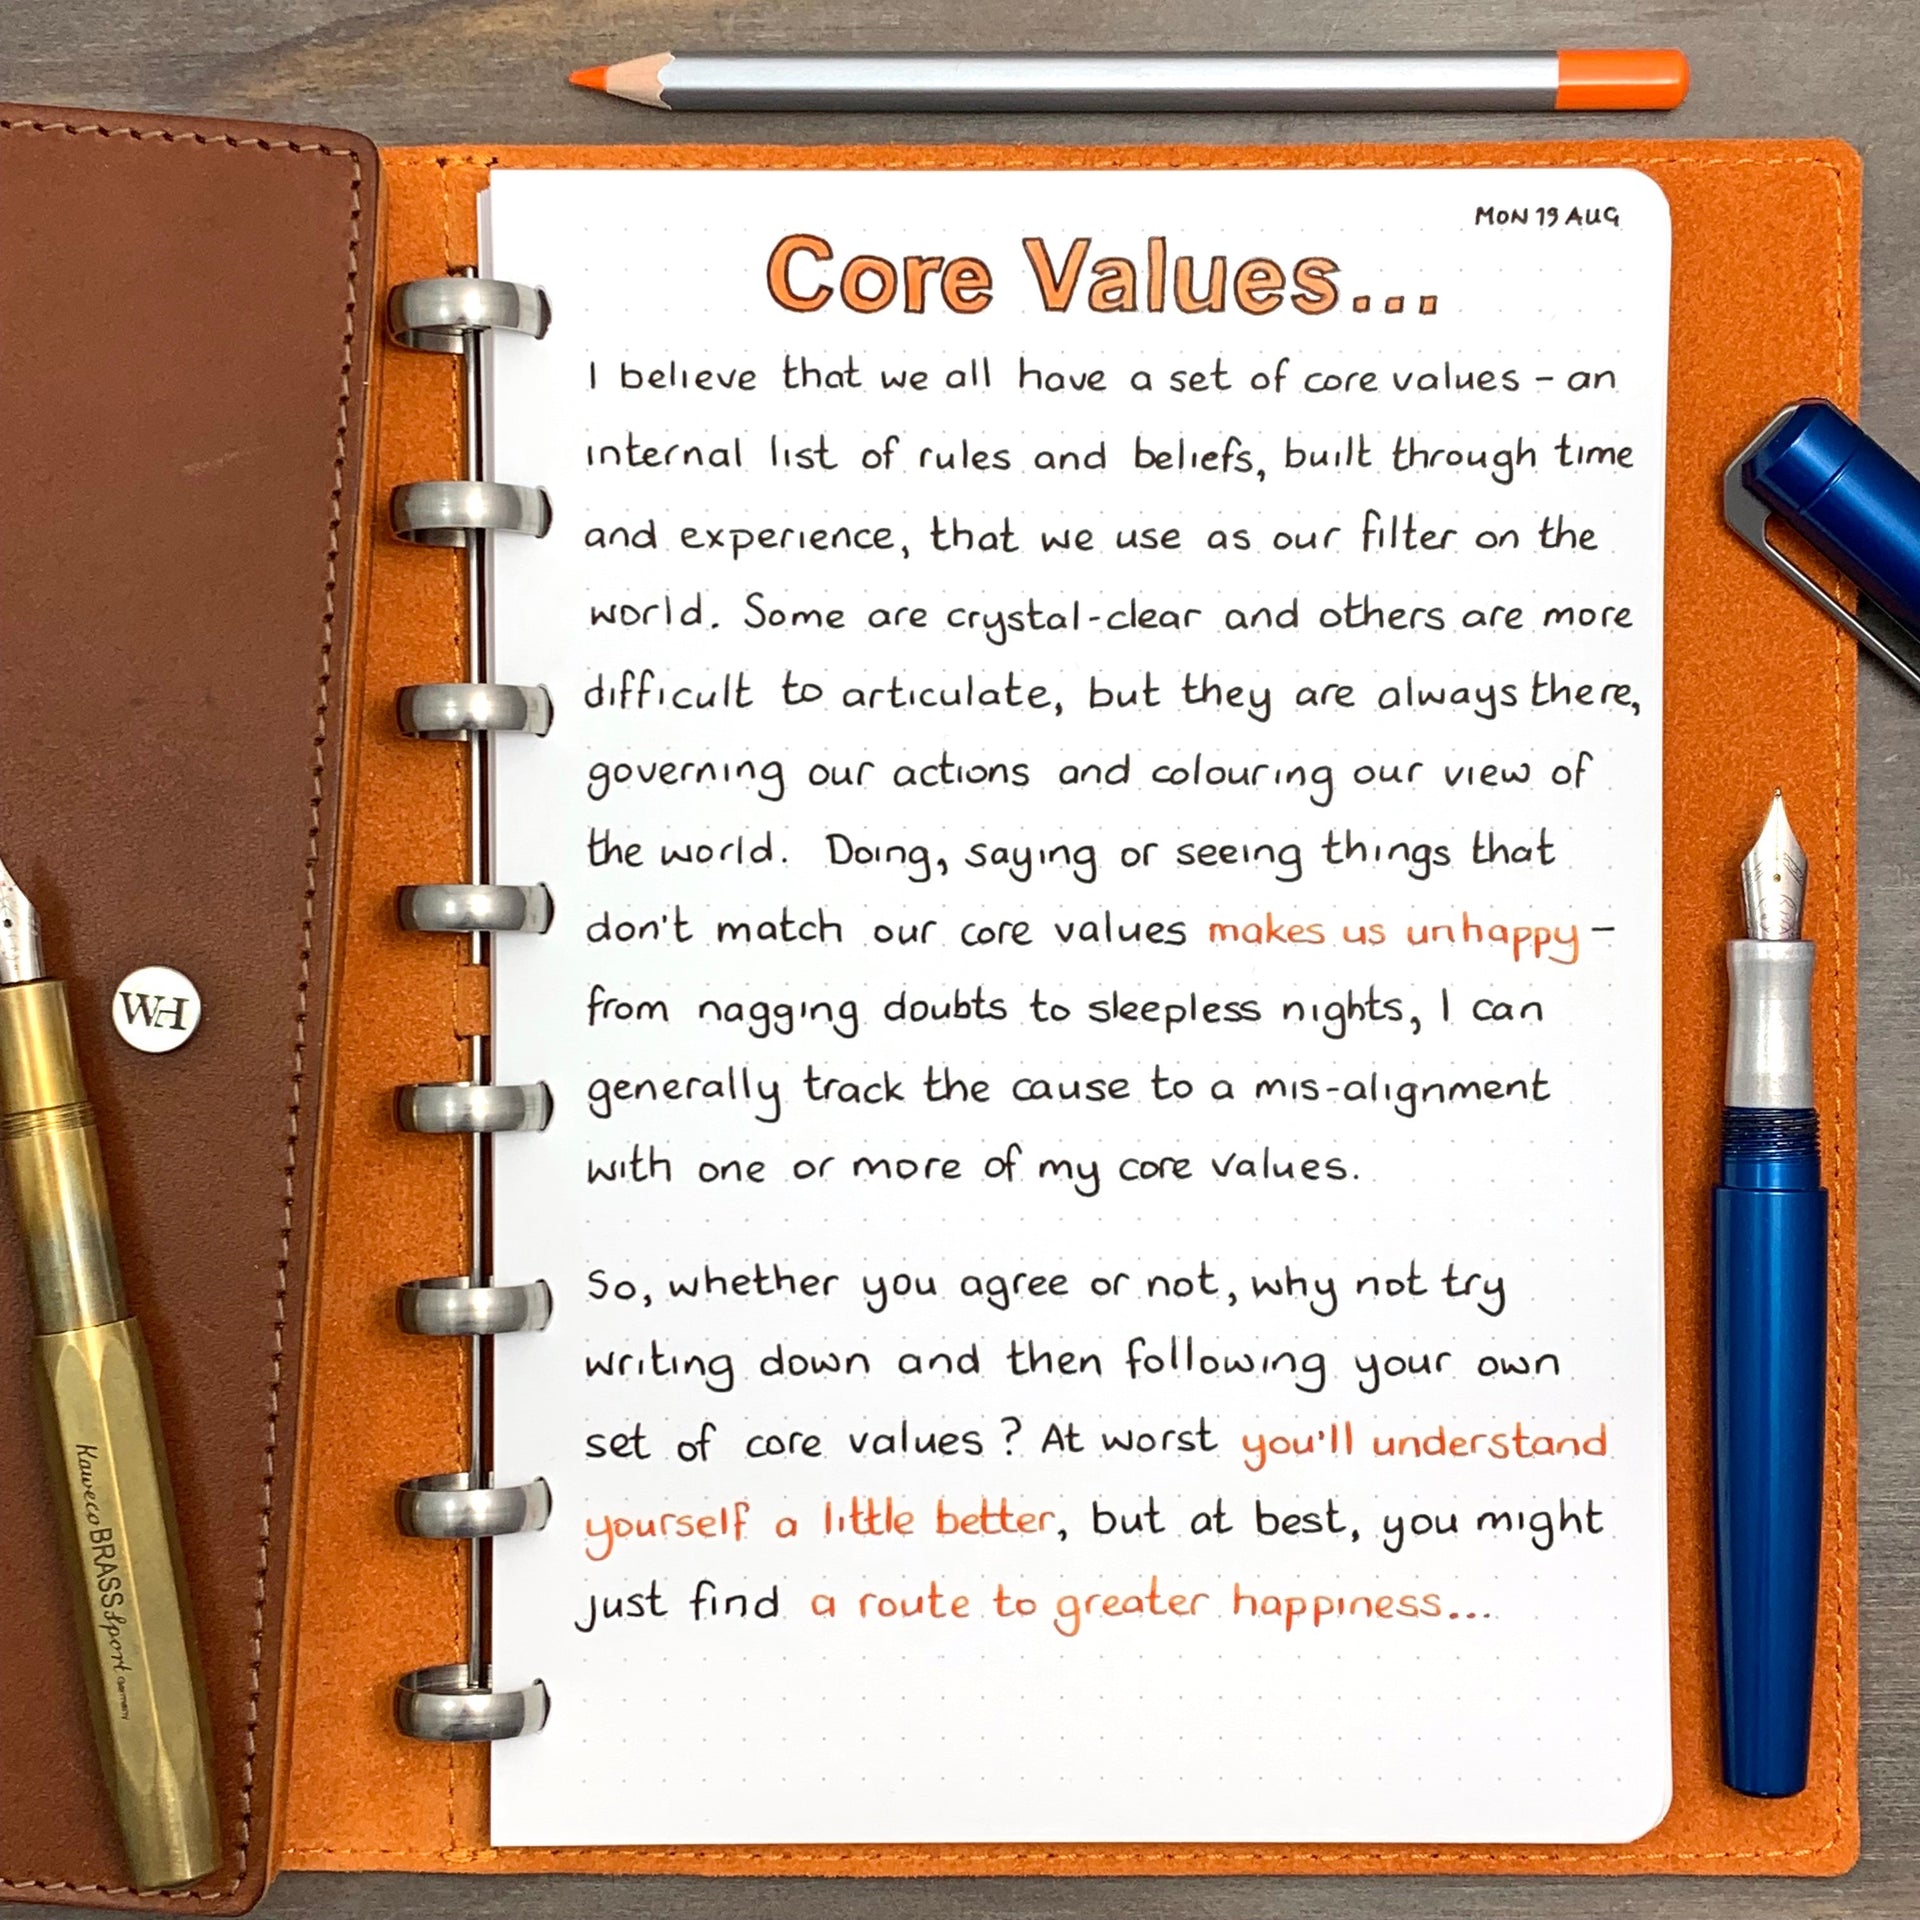 MON 19 AUG
Core Values...
I believe that we all have a set of core values - an
internal list of rules and beliefs, built through time
and experience, that we use as our filter on the
world. Some are crystal-clear and others are more
difficult to articulate, but they are always there,
governing our actions and colouring our view of
the world. Doing, saying or seeing things that
don't match our core values makes us unhappy -
from nagging doubts to sleepless nights, I can
generally track the cause to a mis-alignment
with one or more of my core values.
So, whether you agree or not, why not try
writing down and then following your own
set of core values? At worst you'll understand
yourself a little better, but at best, you might
just find a route to greater happiness...
WH
Kaweco BRASS Sport Germany